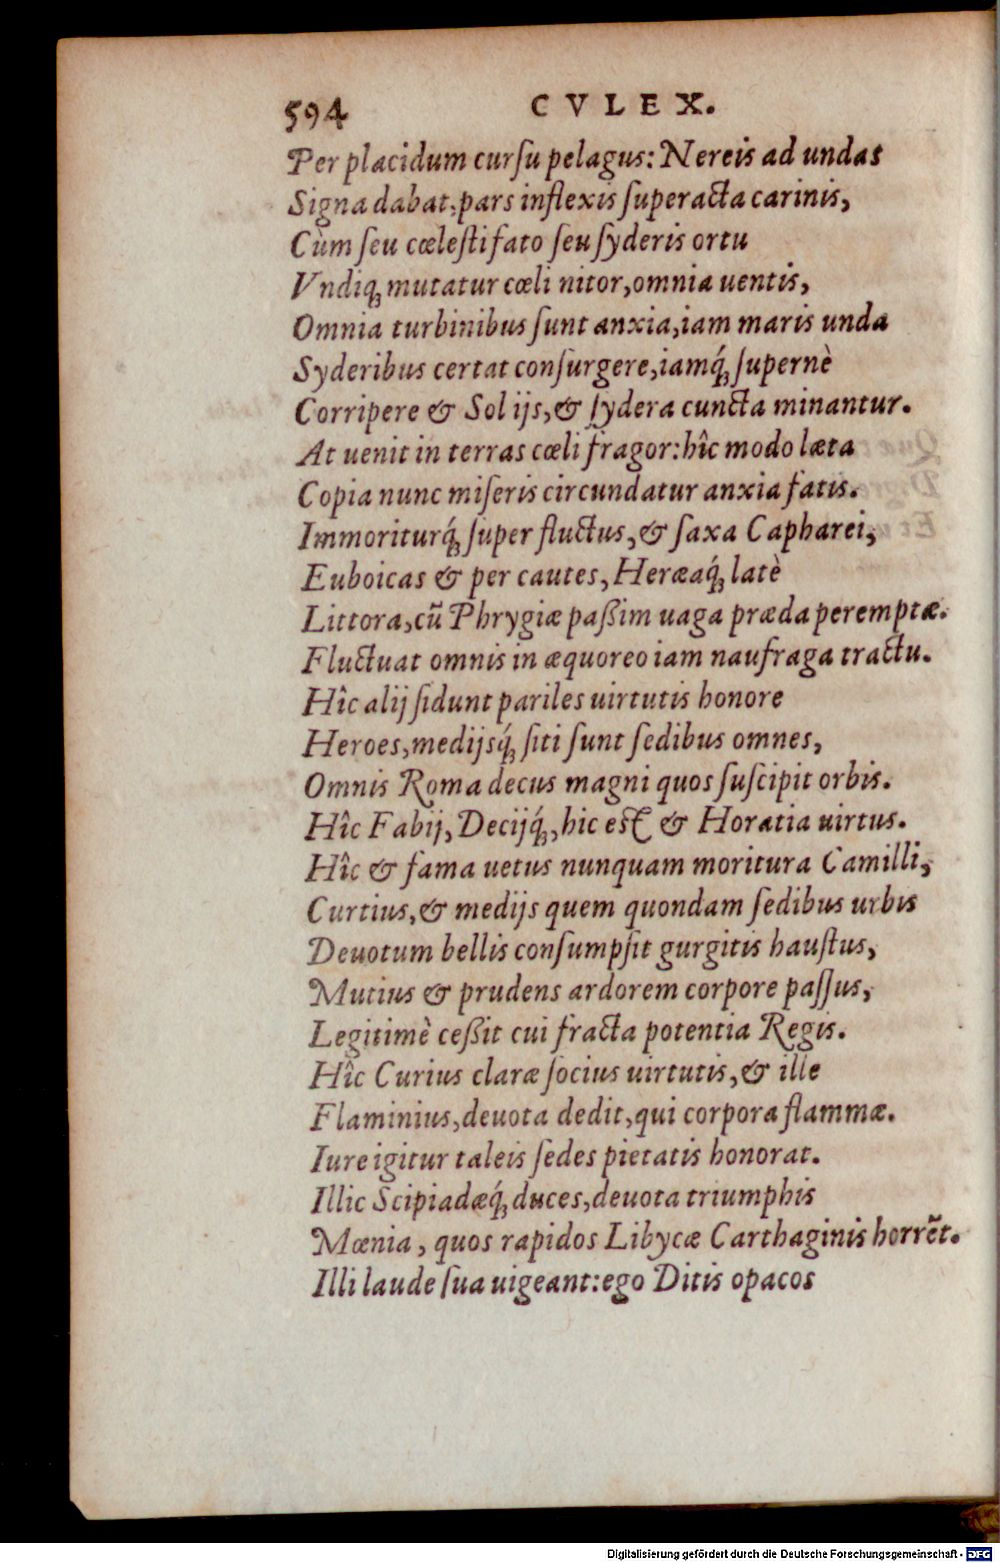 594 CVLEX.
Per placidum curſu pelagus: Nereis ad undas
Signa dabat, pars inflexis ſuperacta carinis,
Cùm ſeu cœleſti fato ſeu ſyderis ortu
Vndiq; mutatur cœli nitor, omnia uentis,
Omnia turbinibus ſunt anxia, iam maris unda
Syderibus certat conſurgere, iamq́; ſupernè
Corripere & Sol ijs, & ſydera cuncta minantur.
At uenit in terras cœli fragor: hîc modo læta
Copia nunc miſeris circundatur anxia fatis.
Immoriturq́; ſuper fluctus, & ſaxa Capharei,
Euboicas & per cautes, Heræaq́; latè
Littora, cũ Phrygiæ paßim uaga præda peremptæ.
Fluctuat omnis in æquoreo iam naufraga tractu.
Hîc alij ſidunt pariles uirtutis honore
Heroes, medijsq́; ſiti ſunt ſedibus omnes,
Omnis Roma decus magni quos ſuſcipit orbis.
Hîc Fabij, Decijq́;, hic eſt & Horatia uirtus.
Hîc & fama uetus nunquam moritura Camilli,
Curtius, & medijs quem quondam ſedibus urbis
Deuotum bellis conſumpſit gurgitis hauſtus,
Mutius & prudens ardorem corpore paſſus,
Legitimè ceßit cui fracta potentia Regis.
Hîc Curius claræ ſocius uirtutis, & ille
Flaminius, deuota dedit, qui corpora flammæ.
Iure igitur taleis ſedes pietatis honorat.
Illic Scipiadæq́; duces, deuota triumphis
Mœnia, quos rapidos Libycæ Carthaginis horrẽt.
Illi laude ſua uigeant: ego Ditis opacos
Digitalisierung gefördert durch die Deutsche Forschungsgemeinschaft - DFG